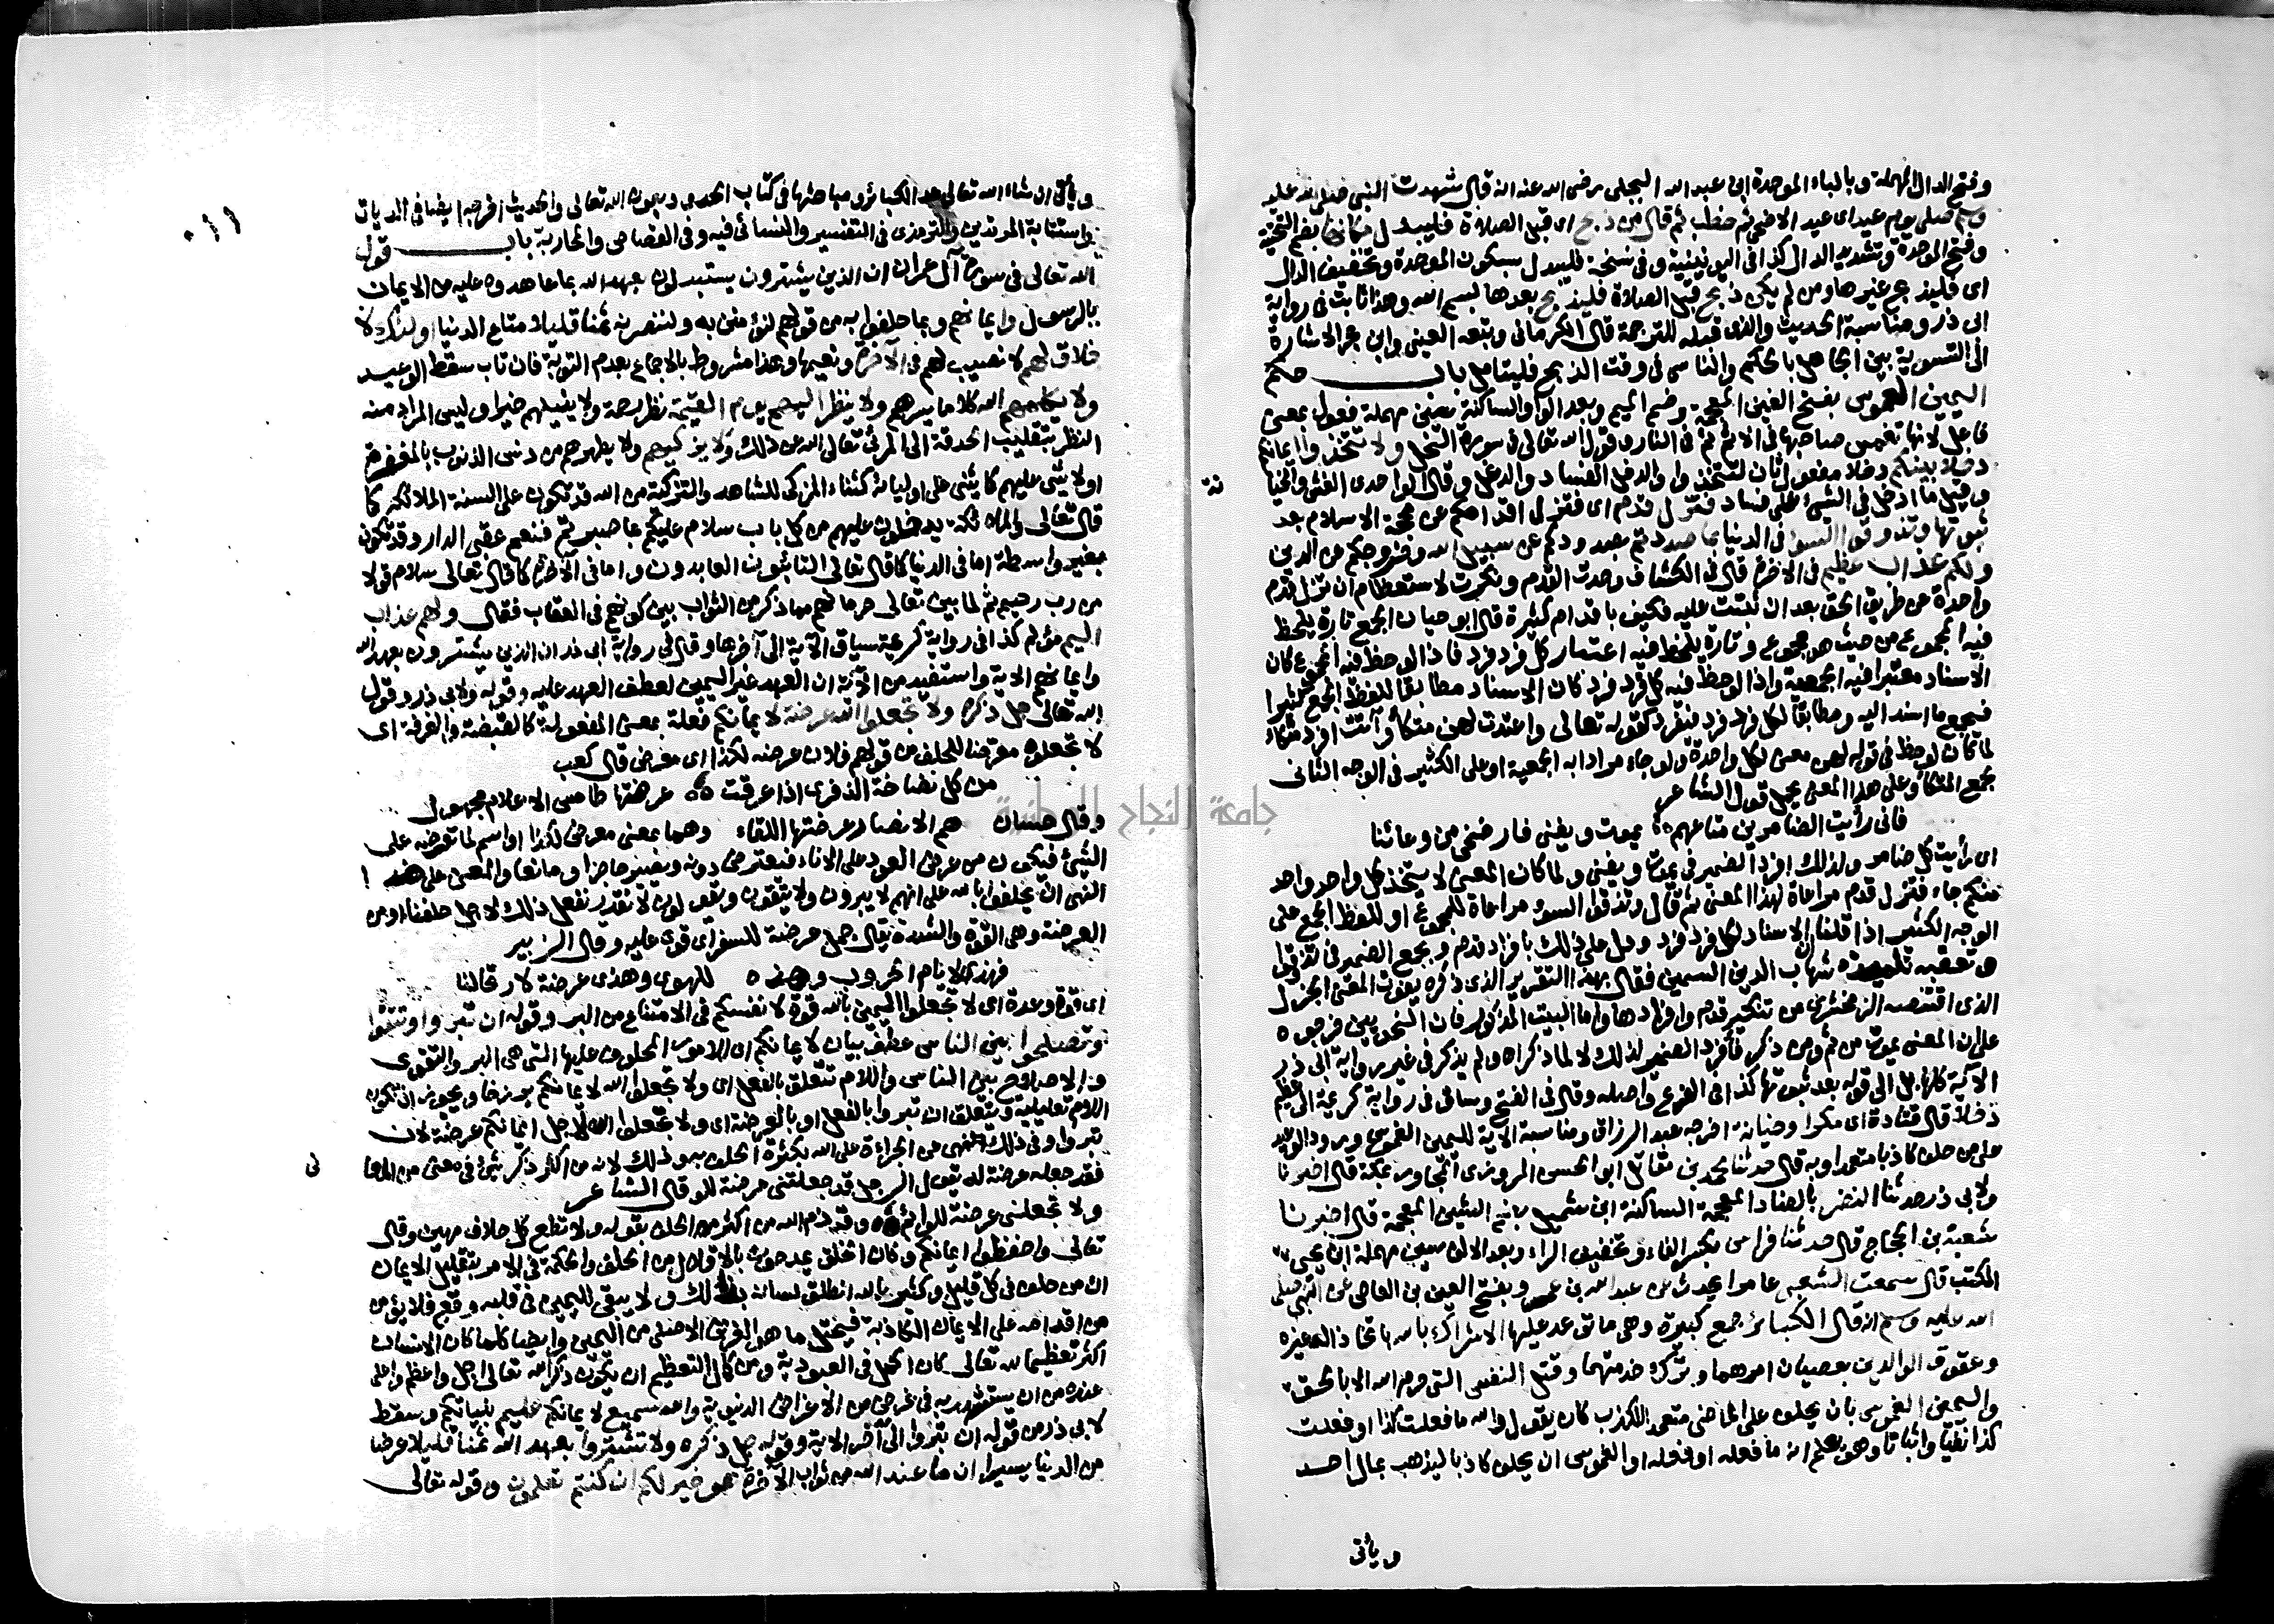 وفتح الدال المهملة وبالباء الموحدة ابن عبد الله البجلى رضى الله عنه انه قال شهدت النبى صلى الله عليه
وسلم صلى يوم عيد اى عيد الاضحى ثم خطب ثم قال من ذبح اى قبل الصلاة فليبدل مكانها بضم التحتية
وفتح الموحدة وتشديد الدال كذا فى اليونينية وفى نسخة فليبدل بسكون الموحدة وتخفيف الدال
اى فليذبح غيرها ومن لم يكن ذبح قبل الصلاة فليذبح بعدها بسم الله وهذا ثابت فى رواية
ابى ذر ومناسبة الحديث والذى قبله للترجمة قال الكرمانى وتبعه العينى وابن حجر الاشارة
الى التسوية بين الجاهل بالحكم والناسى فى وقت الذبح فليتامل باب حكم
اليمين الغموس بفتح الغين المعجمة وضم الميم وبعد الواو الساكنة سين مهملة فعول بمعنى
فاعل لانها تغمس صاحبها فى الاثم ثم فى النار وقول الله تعالى فى سورة النحل ولا تتخذوا ايمانكم
دخلا بينكم دخلا مفعول ثان لتتخذوا والدخل الفساد والدغل وقال الواحدى الغش والخيا
نة
وقيل ما ادخل فى الشئ على فساد فتزل قدم اى فتزل اقدامكم عن محجة الاسلام بعد
ثبوتها وتذوقوا السوء فى الدنيا بما صددتم بصدودكم عن سبيل الله وخروجكم عن الدين
ولكم عذاب عظيم فى الاخرة قال فى الكشاف وحدت القدم ونكرت لاستعظام ان تزل قدم
واحدة عن طريق الحق بعد ان ثبتت عليه فكيف باقدام كثيرة قال ابو حيان الجمع تارة يلحظ
فيه المجموع من حيث هو مجموع وتارة يلحظ فيه اعتبار كل فرد فرد فاذا لوحظ فيه المجموع كان
الاسناد معتبرا فيه الجمعية واذا لوحظ فيه كل فرد فرد كان الاسناد مطابقا للفظ الجمع كثيرا
فيجمع ما اسند اليه ومطابقا لكل فرد فرد فيفرد كقوله تعالى واعتدت لهن متكأ وآتت افرد متكاء
لما كان لوحظ فى قوله لهن معنى لكل واحدة ولو جاء مرادا به الجمعية او على الكثير فى الوجه الثانى
لجمع المتكأ وعلى هذا المعنى يحمل قول الشاعر
فانى رأيت الضامرين متاعهم يموت ويفنى فارضخى من وعائنا
اى رأيت كل ضامر ولذلك افرد الضمير فى يموت ويفنى ولما كان المعنى لا يتخذ كل واحد واحد
منكم جاء فتزل قدم مراعاة لهذا المعنى ثم قال وتذوقوا السوء مراعاة للمجموع او للفظ الجمع على
الوجه الكثير اذا قلنا ان الاسناد لكل فرد فرد ودل على ذلك بافراد قدم وبجمع الضمير فى تذوقوا
وتعقبه تلميذه شهاب الدين السمين فقال بهذا التقرير الذى ذكره يفوت المعنى الجزل
الذى اقتنصه الزمخشرى من تنكير قدم وافرادها واما البيت المذكور فان النحويين خرجوه
على ان المعنى يموت من ثم ومن ذكر فأفرد الضمير لذلك لا لما ذكراه ولم يذكر فى غير رواية ابى ذر
الآية كلها بل الى قوله بعد ثبوتها كذا فى الفرع واصله وقال فى الفتح وساق فى رواية كريمة الى عظيم
دخلا قال قتادة اى مكرا وخيانة اخرجه عبد الرزاق ومناسبة الآية لليمين الغموس ورود الوعيد
على من حلف كاذبا متعمدا وبه قال حدثنا محمد بن مقاتل ابو الحسن المروزى المجاور بمكة قال اخبرنا
ولابى ذر حدثنا النضر بالضاد المعجمة الساكنة ابن شميل بضم الشين المعجمة قال اخبرنا
شعبة بن الحجاج قال حدثنا فراس بكسر الفاء وتخفيف الراء وبعد الالف سين مهملة ابن يحيى
المكتب قال سمعت الشعبى عامرا يحدث عن عبد الله بن عمرو بفتح العين بن العاصى عن النبى صلى
الله عليه وسلم انه قال الكبائر جمع كبيرة وهى ما توعد عليها الاشراك بالله باتخاذ اله غيره
وعقوق الوالدين بعصيان امرهما وترك خدمتهما وقتل النفس التى حرم الله الا بالحق
واليمين الغموس بان يحلف على الماضى متعمدا للكذب كان يقول والله ما فعلت كذا او فعلت
كذا نفيا واثباتا وهو يعلم انه ما فعله او فعله او الغموس ان يحلف كاذبا ليذهب بمال احد
ويأتى
ويأتى ان شاء الله تعالى عدد الكبائر ومباحثها فى كتاب الحدود بعون الله تعالى والحديث اخرجه ايضا فى الديات
واستتابة المرتدين والترمذى فى التفسير والنسائى فيه وفى القصاص والمحاربة باب قول
الله تعالى فى سورة آل عمران ان الذين يشترون يستبدلون بعهد الله بما عاهدوه عليه من الايمان
بالرسول وايمانهم وبما حلفوا به من قولهم لنؤمنن به ولننصرنه ثمنا قليلا متاع الدنيا اولئك لا
خلاق لهم لا نصيب لهم فى الآخرة ونعيمها وهذا مشروط بالاجماع بعدم التوبة فان تاب سقط الوعيد
ولا يكلمهم الله كلاما يسرهم ولا ينظر اليهم يوم القيمة نظر رحمة ولا ينيلهم خيرا وليس المراد منه
النظر بتقليب الحدقة الى المرئى تعالى الله عن ذلك ولا يزكيهم ولا يطهرهم من دنس الذنوب بالمغفرة
اولا يثنى عليهم كما يثنى على اوليائه كثناء المزكى للشاهد والتزكية من الله قد تكون على السنة الملائكة كما
قال تعالى والملائكة يدخلون عليهم من كل باب سلام عليكم بما صبرتم فنعم عقبى الدار وقد تكون
بغير واسطة اما فى الدنيا كما قال تعالى التائبون العابدون واما فى الآخرة كما قال تعالى سلام قولا
من رب رحيم ثم لما بين تعالى حرمانهم مما ذكر من الثواب بين كونهم فى العقاب فقال ولهم عذاب
اليم مؤلم كذا فى رواية كريمة سياق الآية الى آخرها وقال فى رواية ابى ذر ان الذين يشترون بعهد الله
وايمانهم الاية واستفيد من الآية ان العهد غير اليمين لعطف العهد عليه وقوله ولابى ذر وقول
الله تعالى جل ذكره ولا تجعلوا الله عرضة لايمانكم فعلة بمعنى المفعولة كالقبضة والغرفة اى
لا تجعلوه معرضا للحلف من قولهم فلان عرضة لكذا اى معرض قال كعب
من كل نضاخة الذفرى اذا عرقت عرضتها طامس الاعلام مجهول
وقال حسان هم الانصار عرضتها اللقاء وهما بمعنى معرض لكذا او اسم لما تعرضه على
الشئ فيكون من عرض العود على الاناء فيعترض دونه ويصير حاجزا ومانعا والمعنى على هذا
النهى ان يحلفوا بالله على انهم لا يبرون ولا يتقون ويقولون لا نقدر نفعل ذلك لاجل حلفنا او من
العرضة وهى القوة والشدة يقال جمل عرضة للسفر اى قوى عليه وقال الزبير
فهذى لايام الحروب وهذه للهوى وهذى عرضة لارتحالنا
اى قوة وعدة اى لا تجعلوا اليمين بالله قوة لانفسكم فى الامتناع من البر وقوله ان تبروا وتتقوا
وتصلحوا بين الناس عطف بيان لايمانكم اى للامور المحلوف عليها التى هى البر والتقوى
والاصلاح بين الناس واللام تتعلق بالفعل اى ولا تجعلوا الله لايمانكم برزخا ويجوز ان تكون
اللام تعليلية ويتعلق ان تبروا بالفعل او بالعرضة اى ولا تجعلوا الله لاجل ايمانكم عرضة لان
تبروا وفى ذلك نهى عن الجراءة على الله بكثرة الحلف به وذلك لانه من اكثر ذكر شئ فى معنى من المعا
نى
فقد جعله عرضة له يقول الرجل قد جعلتنى عرضة للوم قال الشاعر
ولا تجعلنى عرضة للوائم وقد ذم الله من اكثر من الحلف بقوله ولا تطع كل حلاف مهين وقال
تعالى واحفظوا ايمانكم وكان الخلق يمدحون بالاقلال من الحلف والحكمة فى الامر بتقليل الايمان
ان من حلف فى كل قليل وكثير بالله انطلق لسانه بذلك ولا يبقى لليمين فى قلبه وقع فلا يؤمن
من اقدامه على الايمان الكاذبة فيختل ما هو الغرض الاصلى من اليمين وايضا كلما كان الانسان
اكثر تعظيما لله تعالى كان اكمل فى العبودية ومن كمال التعظيم ان يكون ذكر الله تعالى اجل واعظم واعلى
عنده من ان يستشهد به فى غرض من الاغراض الدنيوية والله سميع لايمانكم عليم بنياتكم وسقط
لابى ذر من قوله ان تبروا الى آخر الاية وقوله جل ذكره ولا تشتروا بعهد الله ثمنا قليلا عرضا
من الدنيا يسيرا ان ما عند الله من ثواب الآخرة هو خير لكم ان كنتم تعلمون وقوله تعالى
جامعة النجاح الوطنية